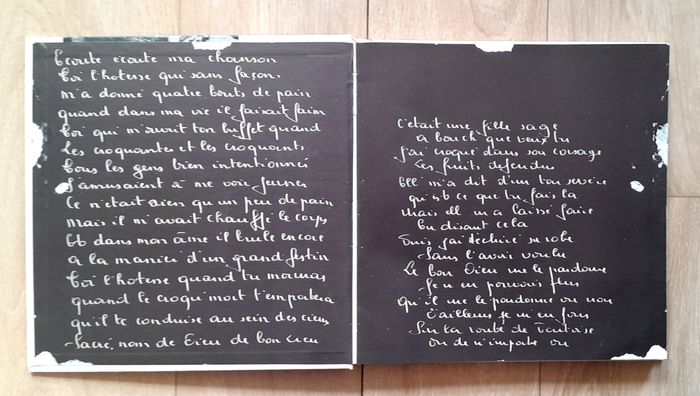 Ecoute ecoute ma chanson
toi l'hotesse qui sans façon
m'a donné quatre bouts de pain
quand dans ma vie il faisait faim
toi qui m'ouvrit ton buffet quand
les croquantes et les croquants
tous les gens bien intentionnés
s'amusaient à me voir jeuner
Ce n'etait rien qu'un peu de pain
Mais il m'avait chauffé le corps
Et dans mon âme il brule encore
a la manièr' d'un grand festin
toi l'hotesse quand tu mourras
quand le croqu' mort t'emportera
qu'il te conduise au sein des cieux
Sacré nom de Dieu de bon Dieu
C'était une fille sage
a bouch' que veux tu
j'ai croqué dans son corsage
Les fruits defendus
Ell' m'a dit d'un ton severe
qu'est ce que tu fais la
Mais ell' m'a laissé faire
En disant cela
Puis j'ai dechiré sa robe
Sans l'avoir voulu
Le bon Dieu me le pardonne
Je n'en pouvais plus
Qu'il me le pardonne ou non
D'ailleurs je m'en fous
Sur la route de
ou de n'importe ou